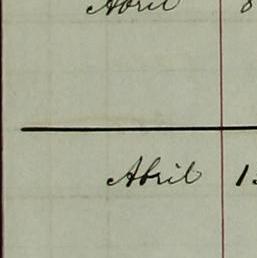 Abril 8
Abril 1